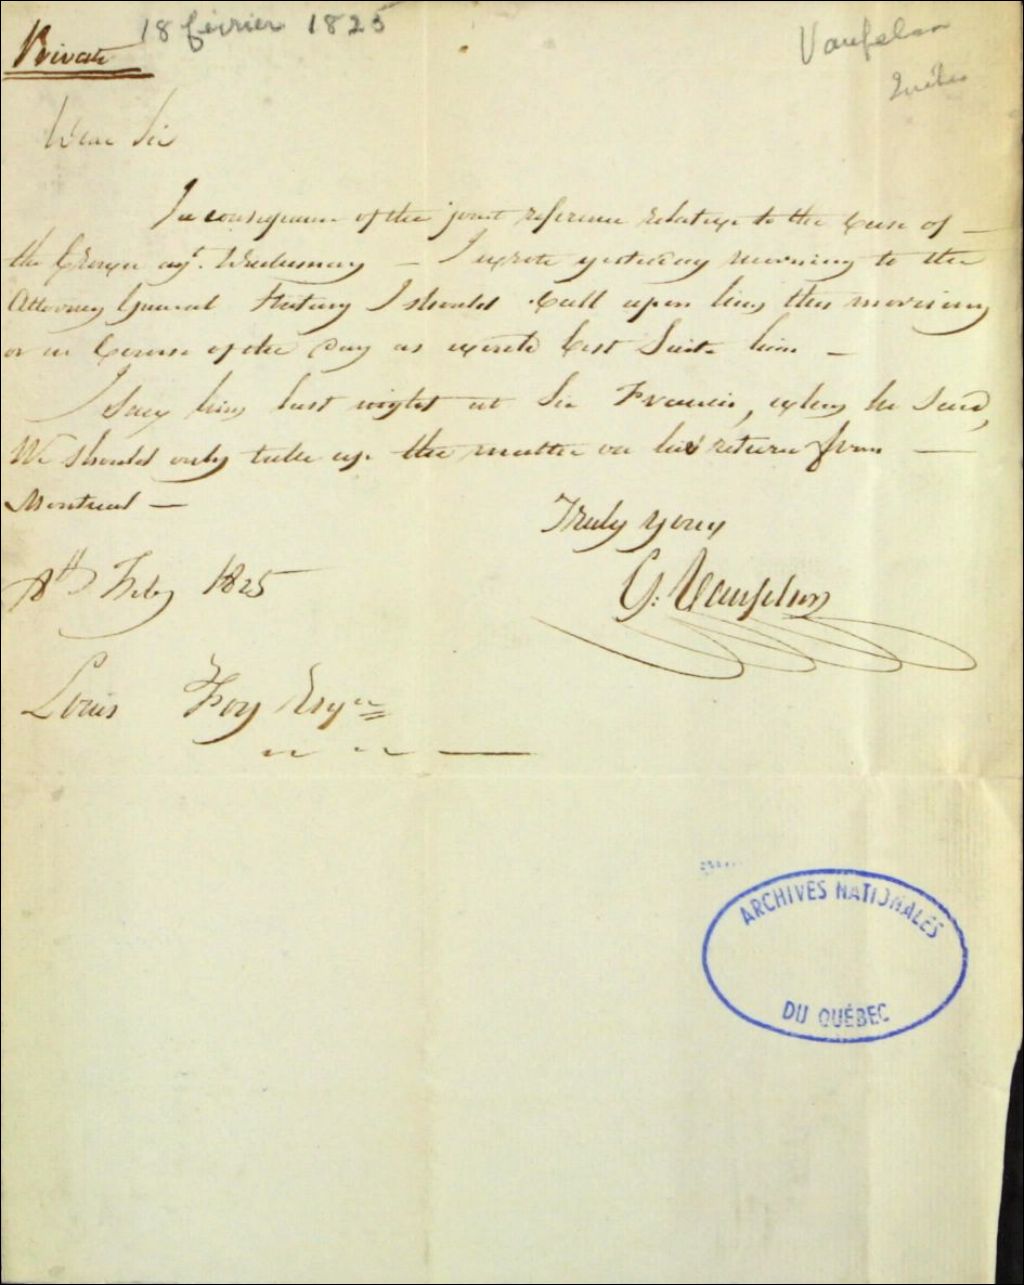 18 février 1825
Vanfelson
Québec
Private
Dear Sir
In consequence of the joint reference relative to the Case of —
the Crown agt. — I wrote yesterday morning to the
Attorney General Stating I should Call upon him this morning
or in Course of the Day as would best Suit him —
I saw him last night at Sir Francis, when he said,
We should only take up the matter on his return from —
Montreal —
Truly yours
G: Vanfelson
18th Feby 1825
Louis Foy Esqre
ARCHIVES NATIONALES
DU QUÉBEC